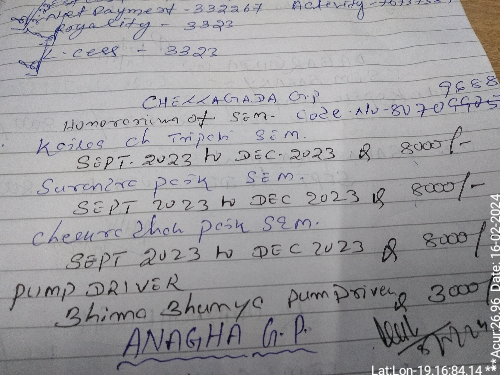 Net Payment - 332267 Activity -
Royality - 3323
L. cess - 3323
CHELLAGADA G.P
9688
Honororium of SEM. Code No-
Kailas ch Tripati SEM.
SEPT. 2023 to DEC. 2023 8000/-
Surendra paik SEM.
SEPT 2023 to DEC 2023 8000/-
paik SEM.
SEPT 2023 to DEC 2023 8000/-
PUMP DRIVER
Bhima Bhunya pumpDriver 3000/
ANAGHA G.P.
Lat:Lon-19.16:84.14 **Acur:26.96, Date: 16-02-2024